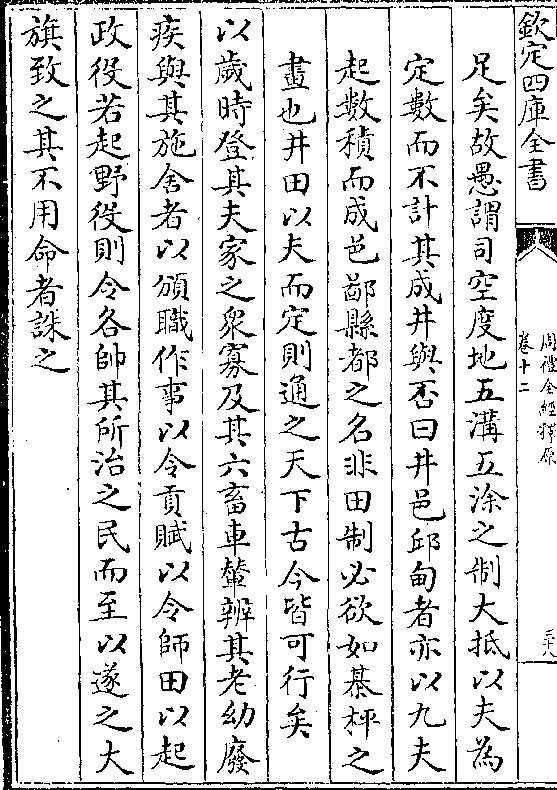 欽定四庫全書
周禮全經釋原
卷十二
三十八
足矣故愚謂司空度地五溝五涂之制大抵以夫為
定數而不計其成井與否曰井邑邱甸者亦以九夫
起數積而成邑鄙縣都之名非田制必欲如棊枰之
畫也井田以夫而定則通之天下古今皆可行矣
以歲時登其夫家之衆寡及其六畜車輦辨其老幼廢
疾與其施舍者以頒職作事以令貢賦以令師田以起
政役若起野役則令各帥其所治之民而至以遂之大
旗致之其不用命者誅之